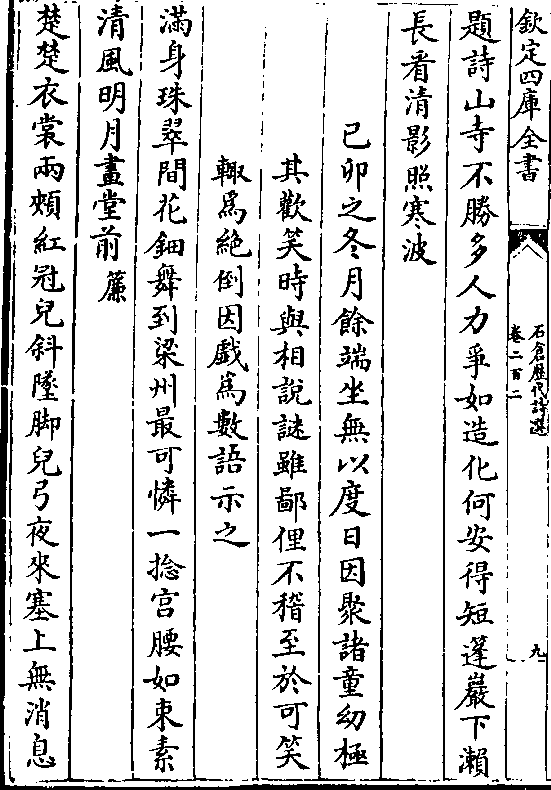 欽定四庫全書
石倉歷代詩選
卷二百二
九
題詩山寺不勝多人力爭如造化何安得短蓬巖下瀨
長看清影照寒波
已卯之冬月餘端坐無以度日因聚諸童幼極
其歡笑時與相說謎雖鄙俚不稽至於可笑
輙為絕倒因戲為數語示之
滿身珠翠間花鈿舞到梁州最可憐一捻宮腰如束素
清風明月畫堂前 簾
楚楚衣裳兩頰紅冠兒斜墜脚兒弓夜來塞上無消息